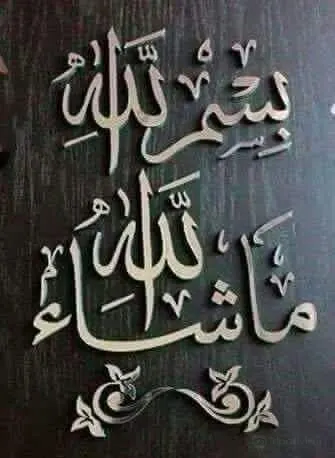 بِسْمِ اللَّهِ
مَا شَاءَ اللَّهُ